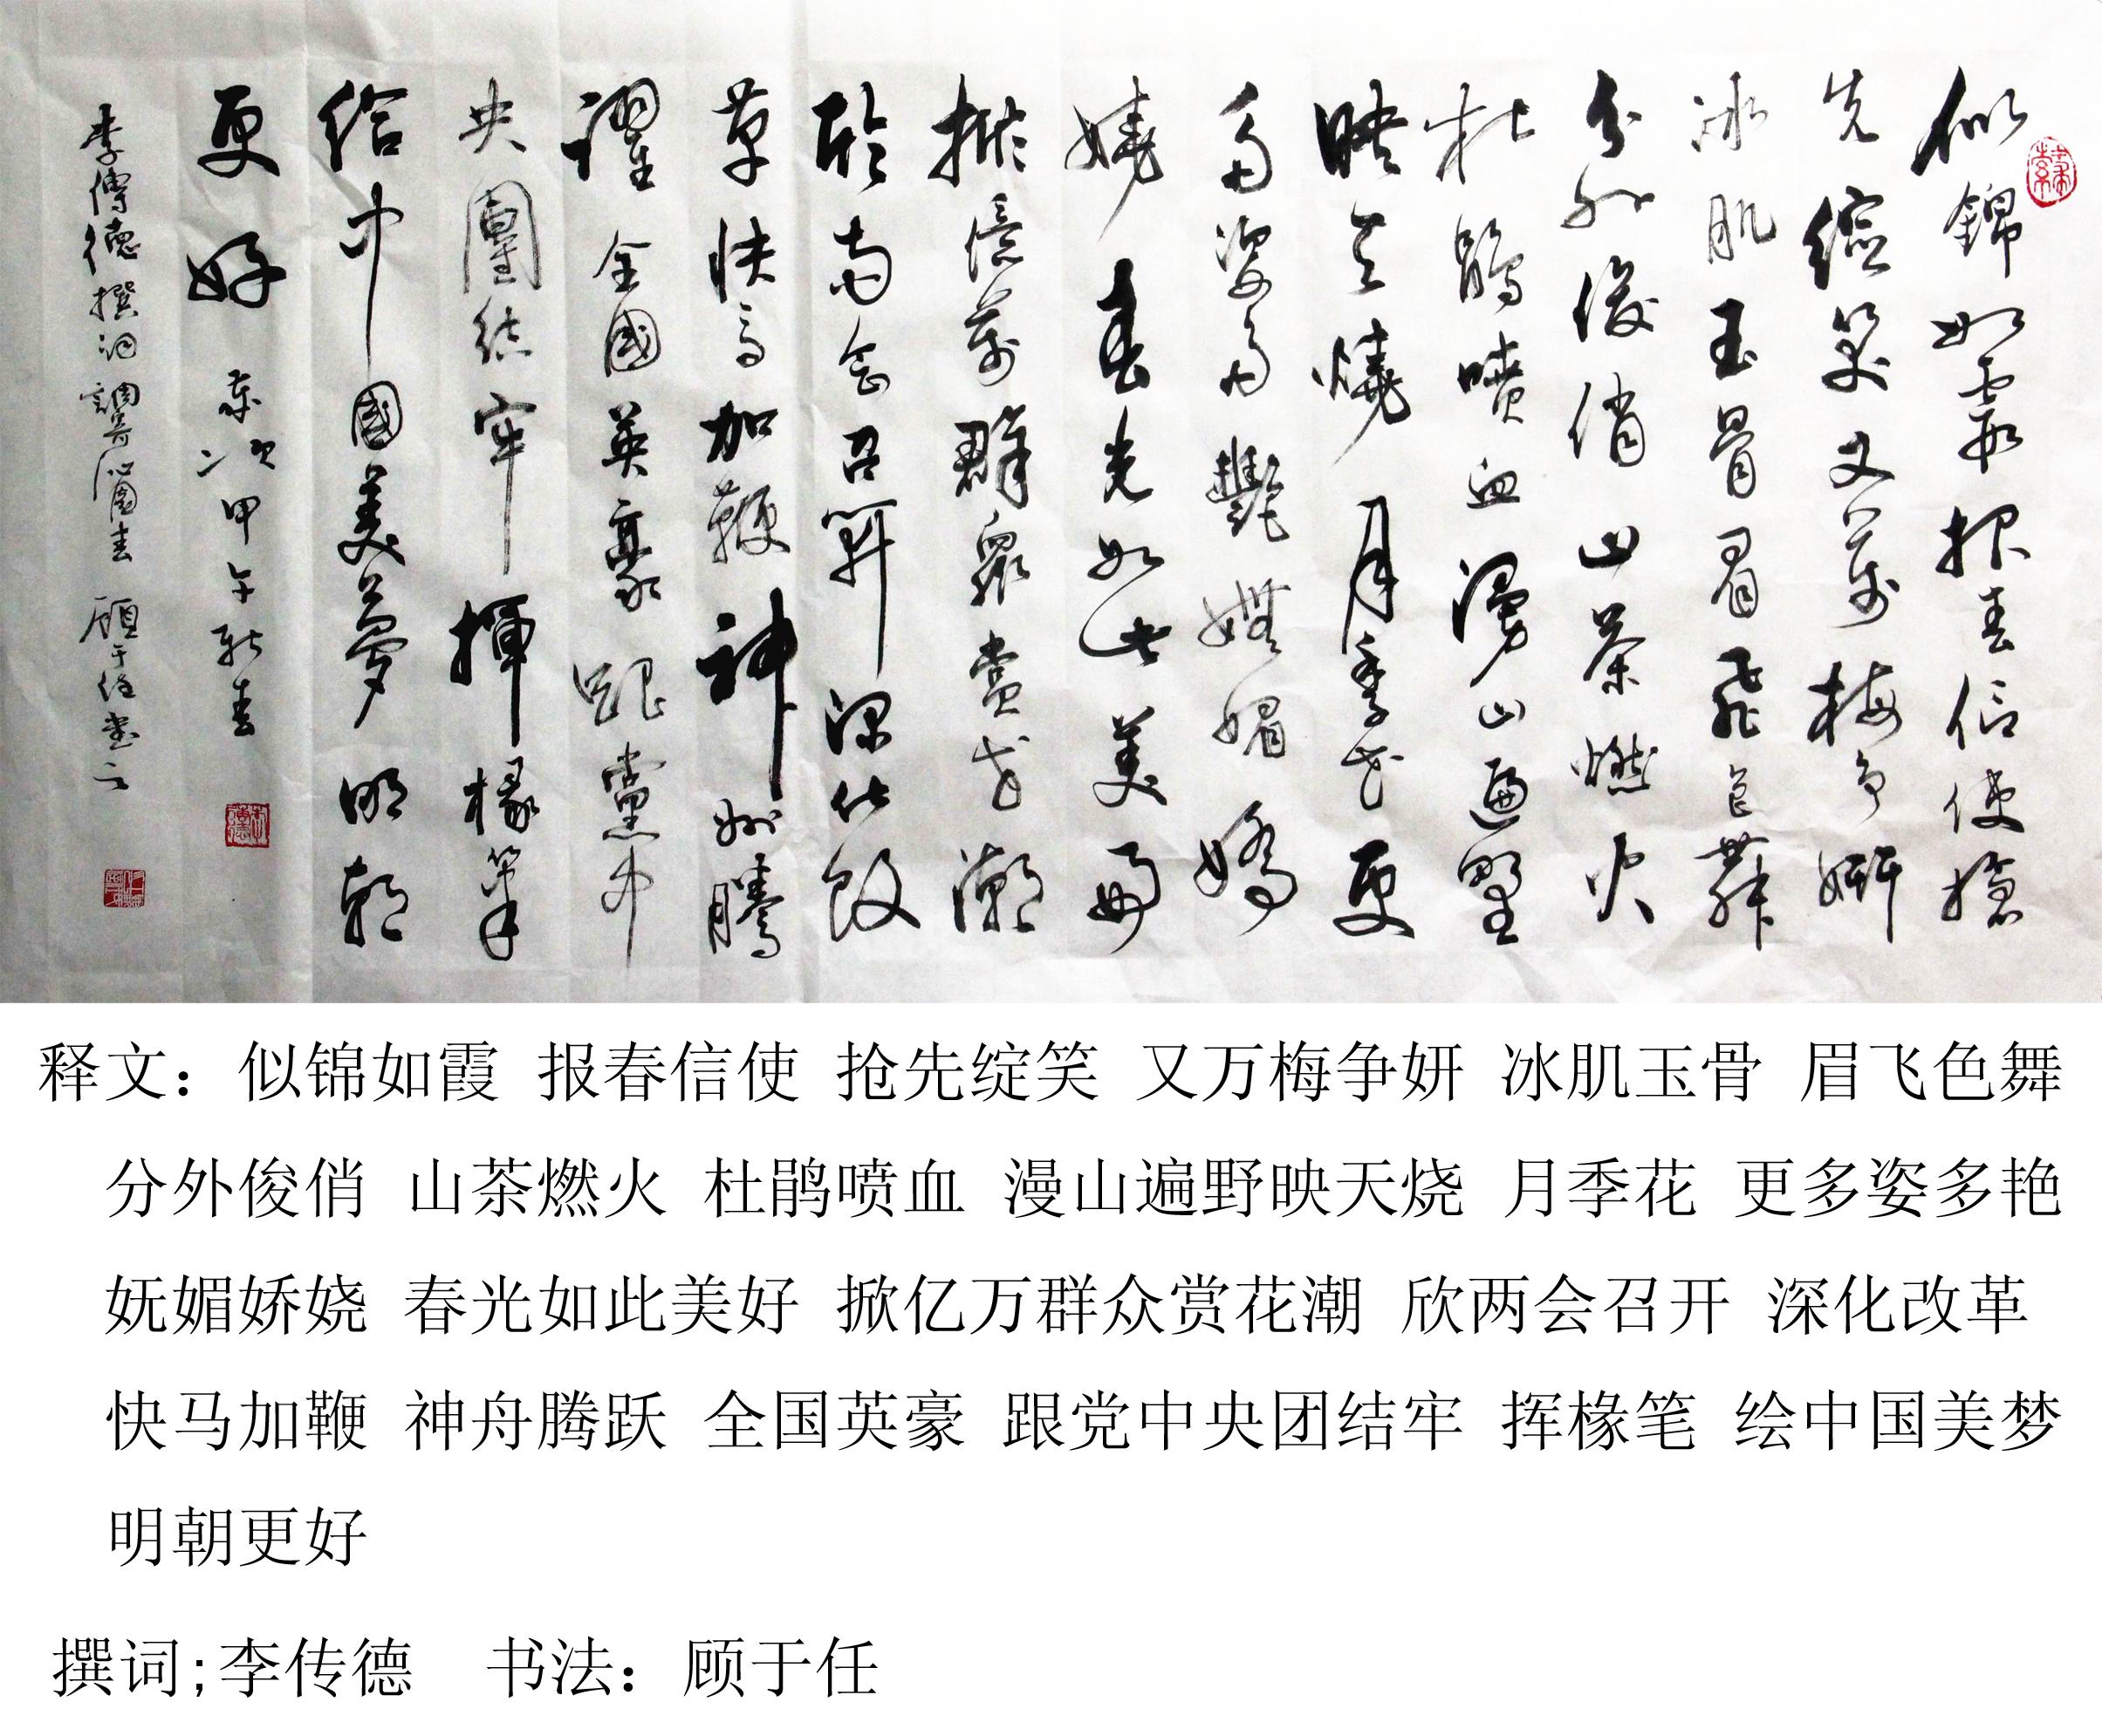 似錦如霞报春信使搶
先綻笑又萬梅争妍
冰肌玉骨眉飛色舞
分外俊俏山茶燃火
杜鵑噴血漫山遍野
映天燒月季花更
多姿多艷嫵媚嬌
嬈春光如此美好
掀億萬群衆賞花潮
欣两会召開深化改
革快马加鞭神州騰
躍全國英豪跟黨中
央團结牢揮椽筆
绘中國美夢明朝
更好 歲次甲午新春
李傳德撰詞調寄沁園春 顧于任書之
释文：似锦如霞 报春信使 抢先绽笑 又万梅争妍 冰肌玉骨 眉飞色舞
分外俊俏 山茶燃火 杜鹃喷血 漫山遍野映天烧 月季花 更多姿多艳
妩媚娇娆 春光如此美好 掀亿万群众赏花潮 欣两会召开 深化改革
快马加鞭 神舟腾跃 全国英豪 跟党中央团结牢 挥椽笔 绘中国美梦
明朝更好
撰词;李传德 书法：顾于任